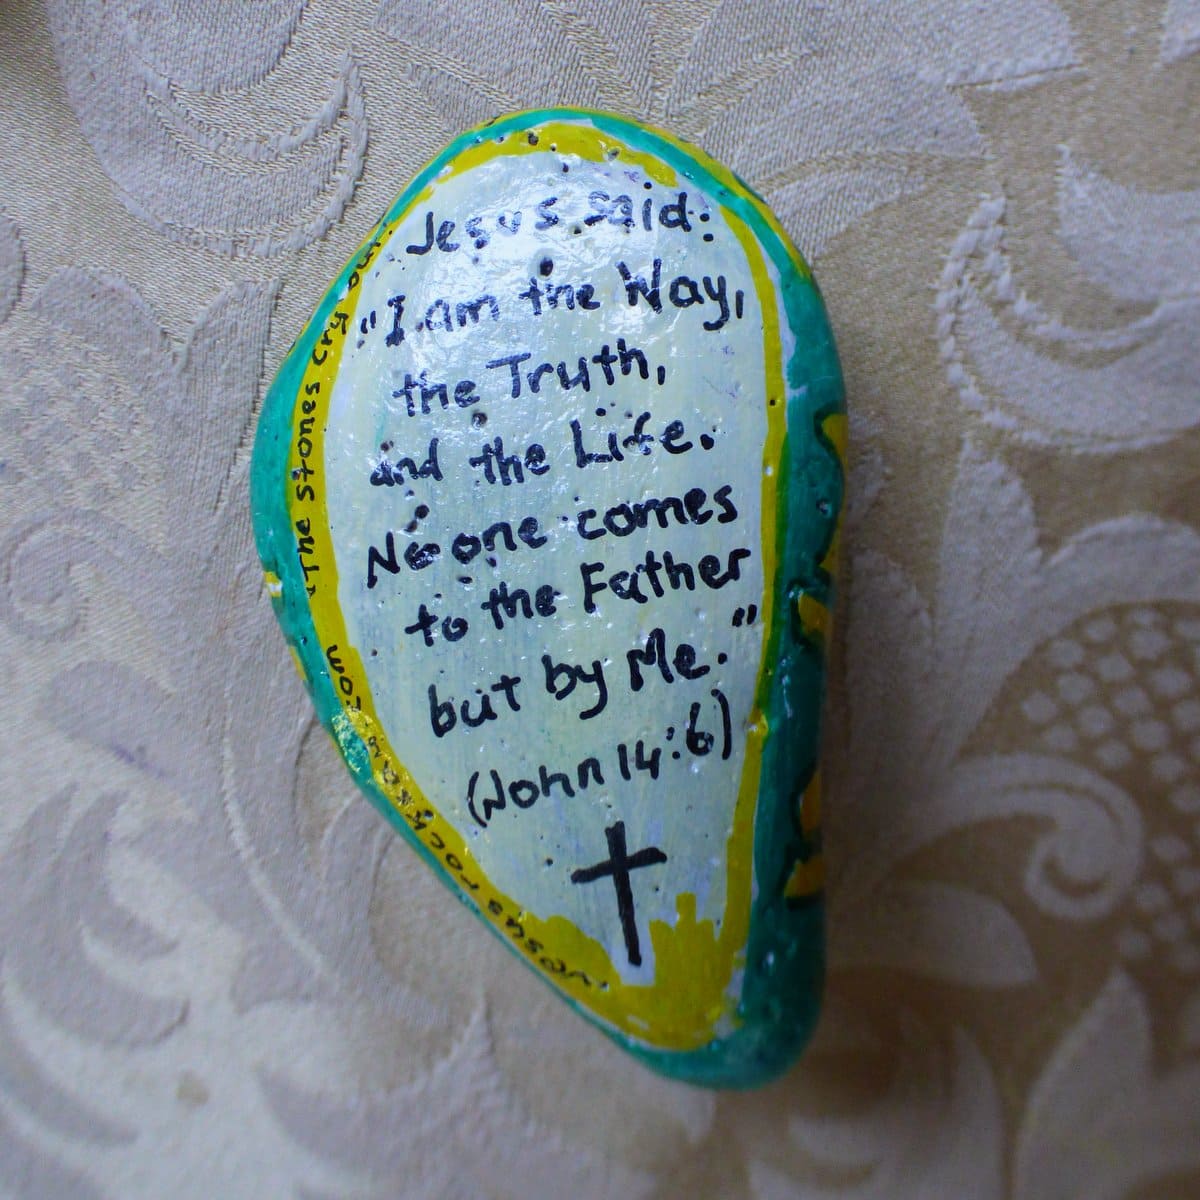 Jesus said:
"I am the Way,
the Truth,
and the Life.
No one comes
to the Father
but by Me."
(John 14:6)
"The stones cry out.
Jesus rocks